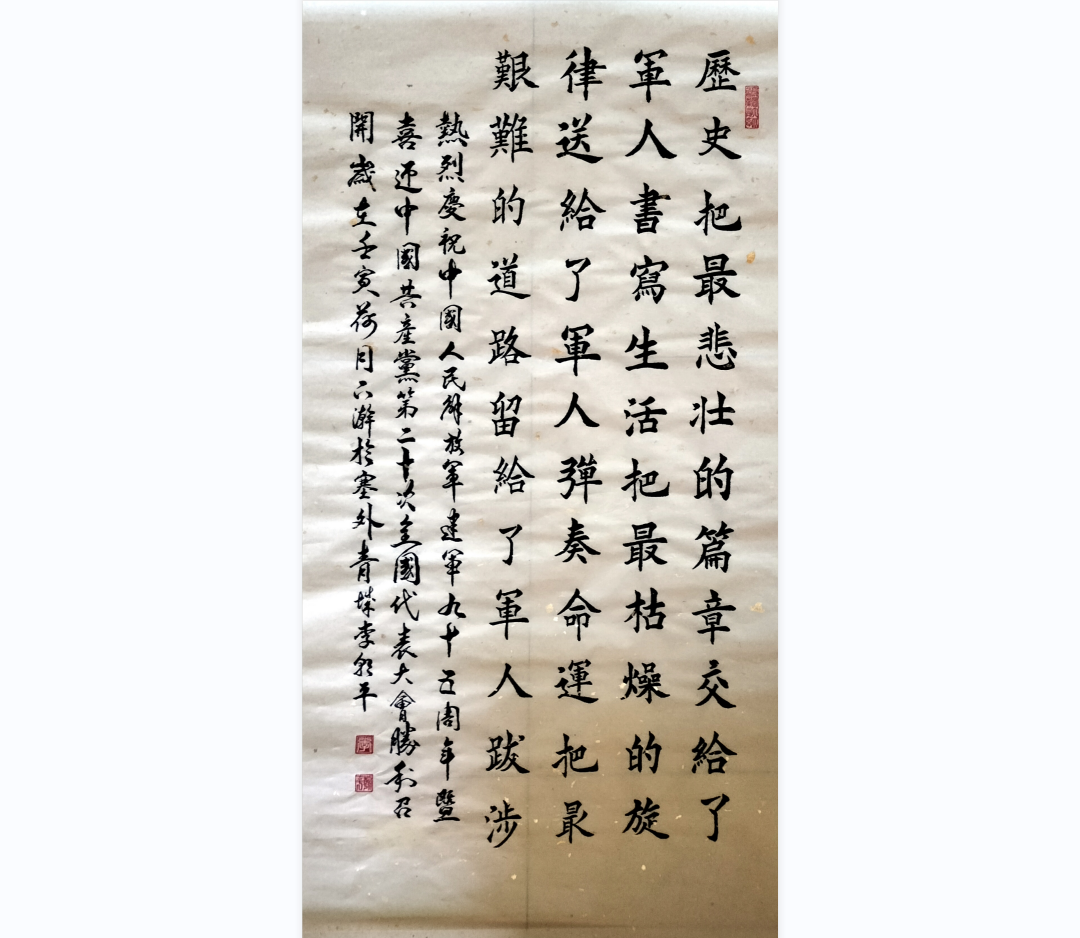 歷史把最悲壯的篇章交給了
軍人書寫生活把最枯燥的旋
律送給了軍人彈奏命運把最
艱難的道路留給了軍人跋涉
熱烈慶祝中國人民解放軍建軍九十五周年暨
喜迎中國共產黨第二十次全國代表大會勝利召
開歲在壬寅荷月下澣於塞外青城李永平